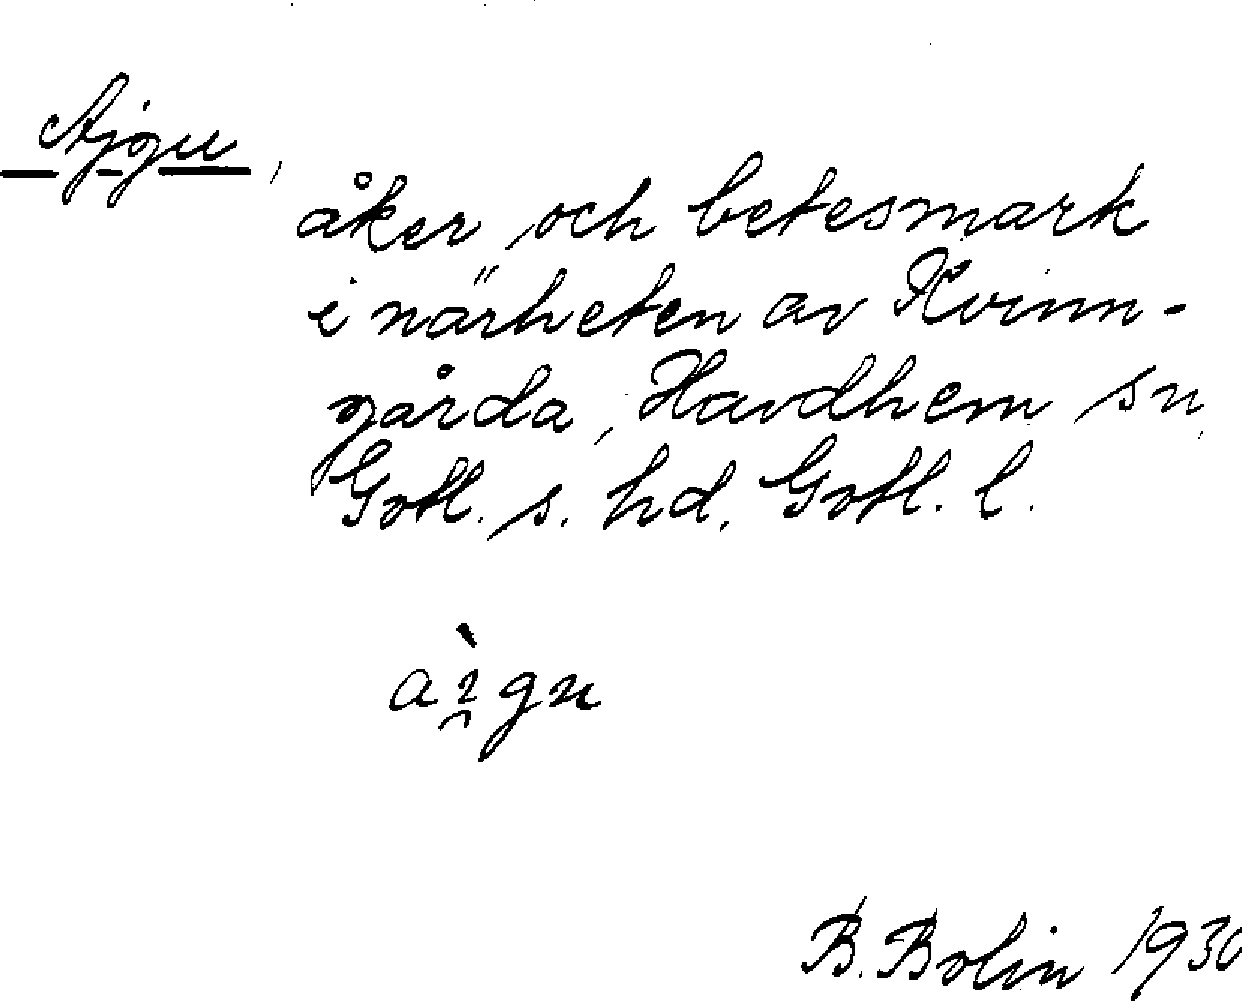 Ajgu,
åker och betesmark
i närheten av Kvinn-
gårda, Havdhem sn,
Gotl. s. hd, Gotl. l.
àı̯gu
B. Bolin 1930